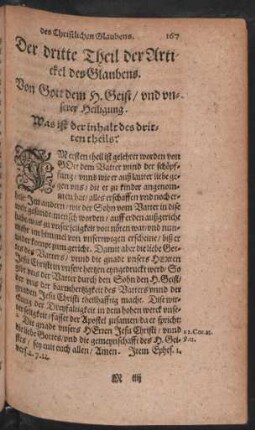 des Christlichen Glaubens. 167
Der dritte Theil der Arti-
ckel des Glaubens.
Von Gott dem H. Geist / vnd vn-
serer Heiligung.
Was ist der inhalt des drit-
ten theils?
IM ersten theil ist gelehret worden von
GOtt dem Vatter vnnd der schöpf-
fung / vnnd wie er auß lauter liebe ge-
gen vns / die er zu kinder angenom-
men hat / alles erschaffen vnd noch er-
halte: Jm andern / wie der Sohn vom Vatter in dise
welt gesandt mensch worden / auff erden außgerichtet
habe was zu vnser seligkeit von nöten war / vnd nun-
mehr im himmel von vnsert wegen erscheine / biß er
wider komme zum gericht. Damit aber die liebe Got-
tes des Vatters / vnnd die gnade vnsers HErren
Jesu Christi in vnsere hertzen eingedruckt werd / So
der Vatter durch den Sohn den H. Geist /
der vns der barmhertzigkeit des Vatters vnnd der
gnaden Jesu Christi theilhafftig macht. Dise wir-
ckung der Dreyfaltigkeit in dem hohen werck vnser
seligkeit / fasset der Apostel zusamen da er spricht:
Die gnade vnsers HErren Jesu Christi / vnnd
die liebe Gottes / vnd die gemeynschafft des H. Gei-
stes / sey mit euch allen / Amen. Jtem Ephes. 1.
vers. 4. 7. 14.
2. Cor. 13.
M iij